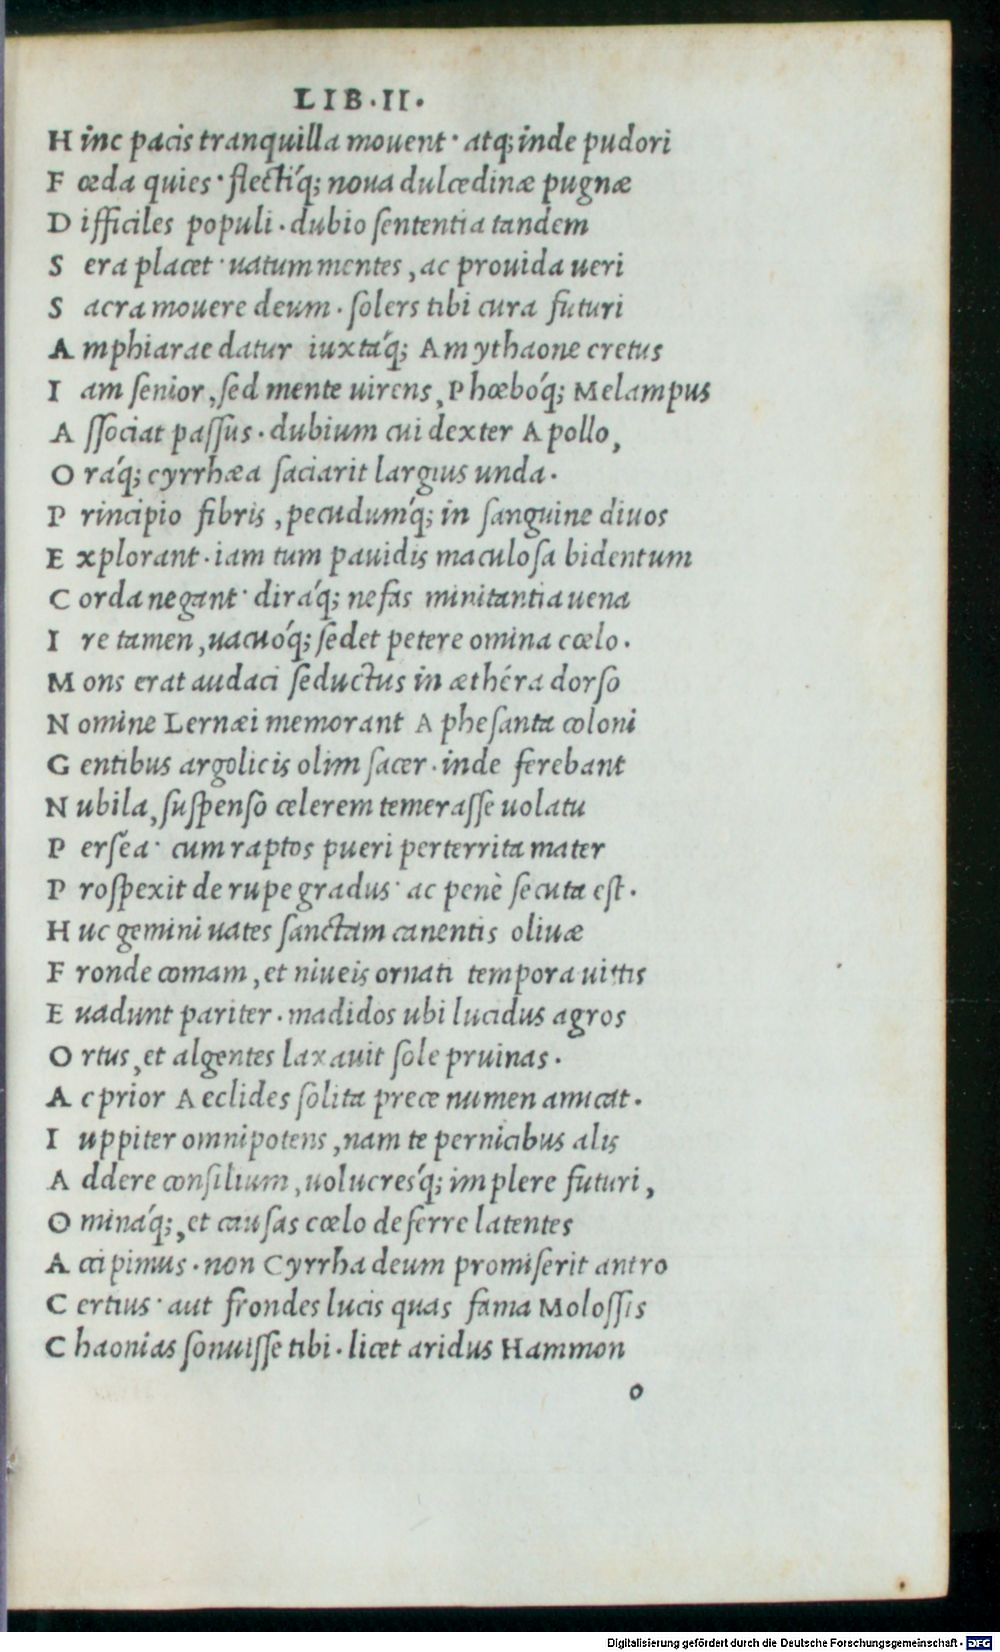 LIB.II.
H inc pacis tranquilla mouent· atq; inde pudori
F œda quies· flectíq; noua dulcedinæ pugnæ
D ifficiles populi. dubio sententia tandem
S era placet· uatum mentes, ac prouida ueri
S acra mouere deum. solers tibi cura futuri
A mphiarae datur iuxtáq; Amythaone cretus
I am senior, sed mente uirens, Phœbóq; Melampus
A ssociat passus. dubium cui dexter Apollo,
O ráq; cyrrhæa saciarit largius unda.
P rincipio fibris, pecudumq́; in sanguine diuos
E xplorant. iam tum pauidis maculosa bidentum
C orda negant· diráq; nefas minitantia uena
I re tamen, uacuóq; sedet petere omina cœlo.
M ons erat audaci seductus in æthéra dorso
N omine Lernæi memorant Aphesanta coloni
G entibus argolicis olim sacer. inde ferebant
N ubila, suspenso celerem temerasse uolatu
P erséa· cum raptos pueri perterrita mater
P rospexit de rupe gradus· ac penè secuta est.
H uc gemini uates sanctam canentis oliuæ
F ronde comam, et niueis ornati tempora uittis
E uadunt pariter. madidos ubi lucidus agros
O rtus, et algentes laxauit sole pruinas.
A c prior Aeclides solita prece numen amicat.
I uppiter omnipotens, nam te pernicibus alis
A ddere consilium, uolucresq́; implere futuri,
O mináq;, et causas cœlo deferre latentes
A ccipimus. non Cyrrha deum promiserit antro
C ertius· aut frondes lucis quas fama Molossis
C haonias sonuisse tibi. licet aridus Hammon
o
Digitalisierung gefördert durch die Deutsche Forschungsgemeinschaft - DFG